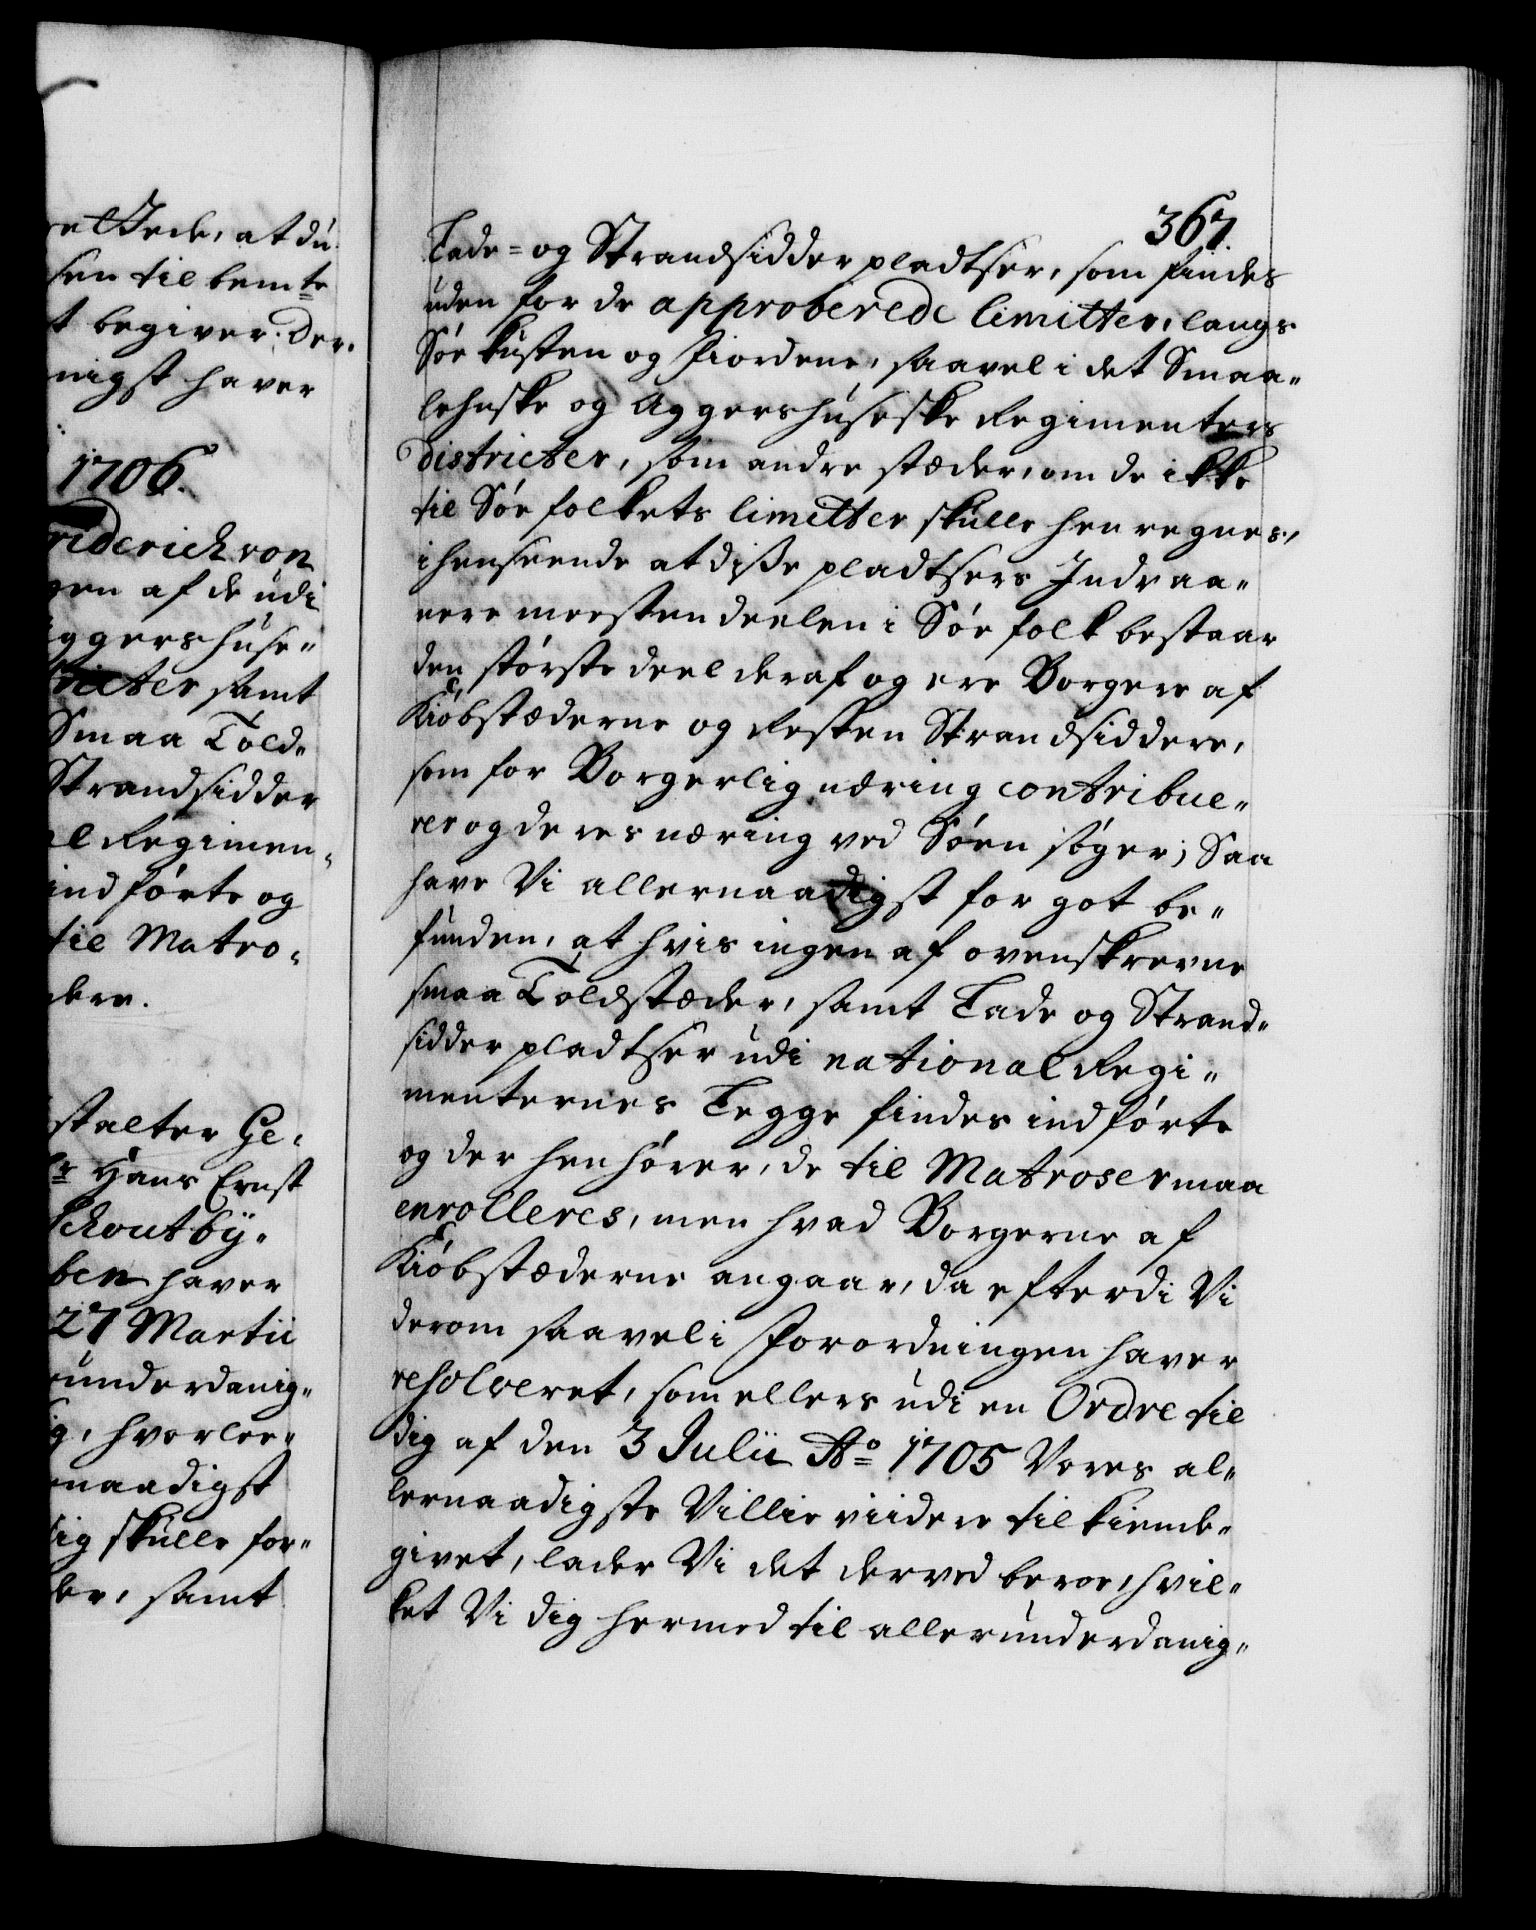 rettede, at du
sen til bemte
t begiver. Der,
nigst haver
1706.
riderich von
gen af de udi
ggershuse„
tricter samt
Smaa Told„
Strandsidder
el Regimen„
indførte og
til Matro„
dere.
stalter Ge„
Hr Hans Ernst
Schoutbÿ„
ben haver
27 Martii
underdanig„
g, hvorlee„
naadigst
ig skulle for„
der, samt
367.
Lade= og Strandsidder pladtser, som findes
uden for de approberede limitter, langs
Søe kusten og Fiordene, saavel i det Smaa„
lehnske og Aggershuseske Regimenters
districter, som andre stæder, om de ikke
til Søe folkets limitter skulle hen regnes,
i henseende at disse pladtsers Indvaa„
nere meesten deelen i Søe folk bestaar
den største deel deraf og ere Borgere af
Kiøbstæderne og Resten Strandsiddere,
som for Borgerlig næring contribue„
rer og deres næring ved Søen søger; Saa
have Vi allernaadigst for got be„
funden, at hvis ingen af ovenskrevne
smaa Toldstæder, samt Lade og Strand„
sidder pladtser udi national Regi„
menternes Legge findes indførte
og der henhører, de til Matroser maa
enrolleres, men hvad Borgerne af
Kiøbstæderne angaar, da efterdi Vi
derom saavel i Forordningen haver
resolveret, som ellers udi en Ordre til
dig af den 3 Julii Ao 1705 Vores al„
lernaadigste Villie viidere tilkiende„
givet, lader Vi det derved beroe, hvil„
ket Vi dig hermed til allerunderdanig„